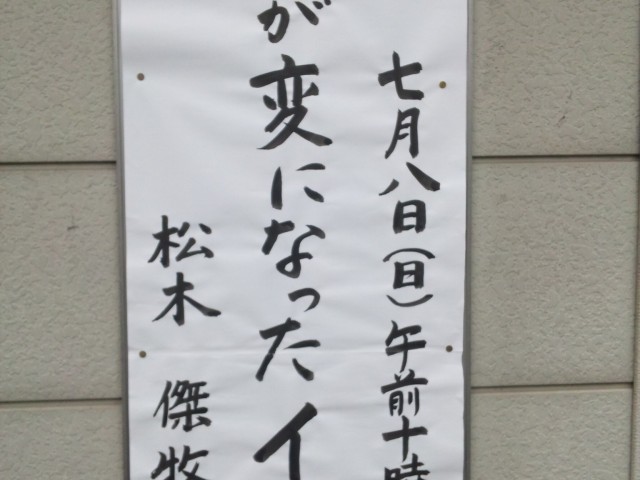 七月八日(日)午前十時
が変になったイ
松木 傑牧